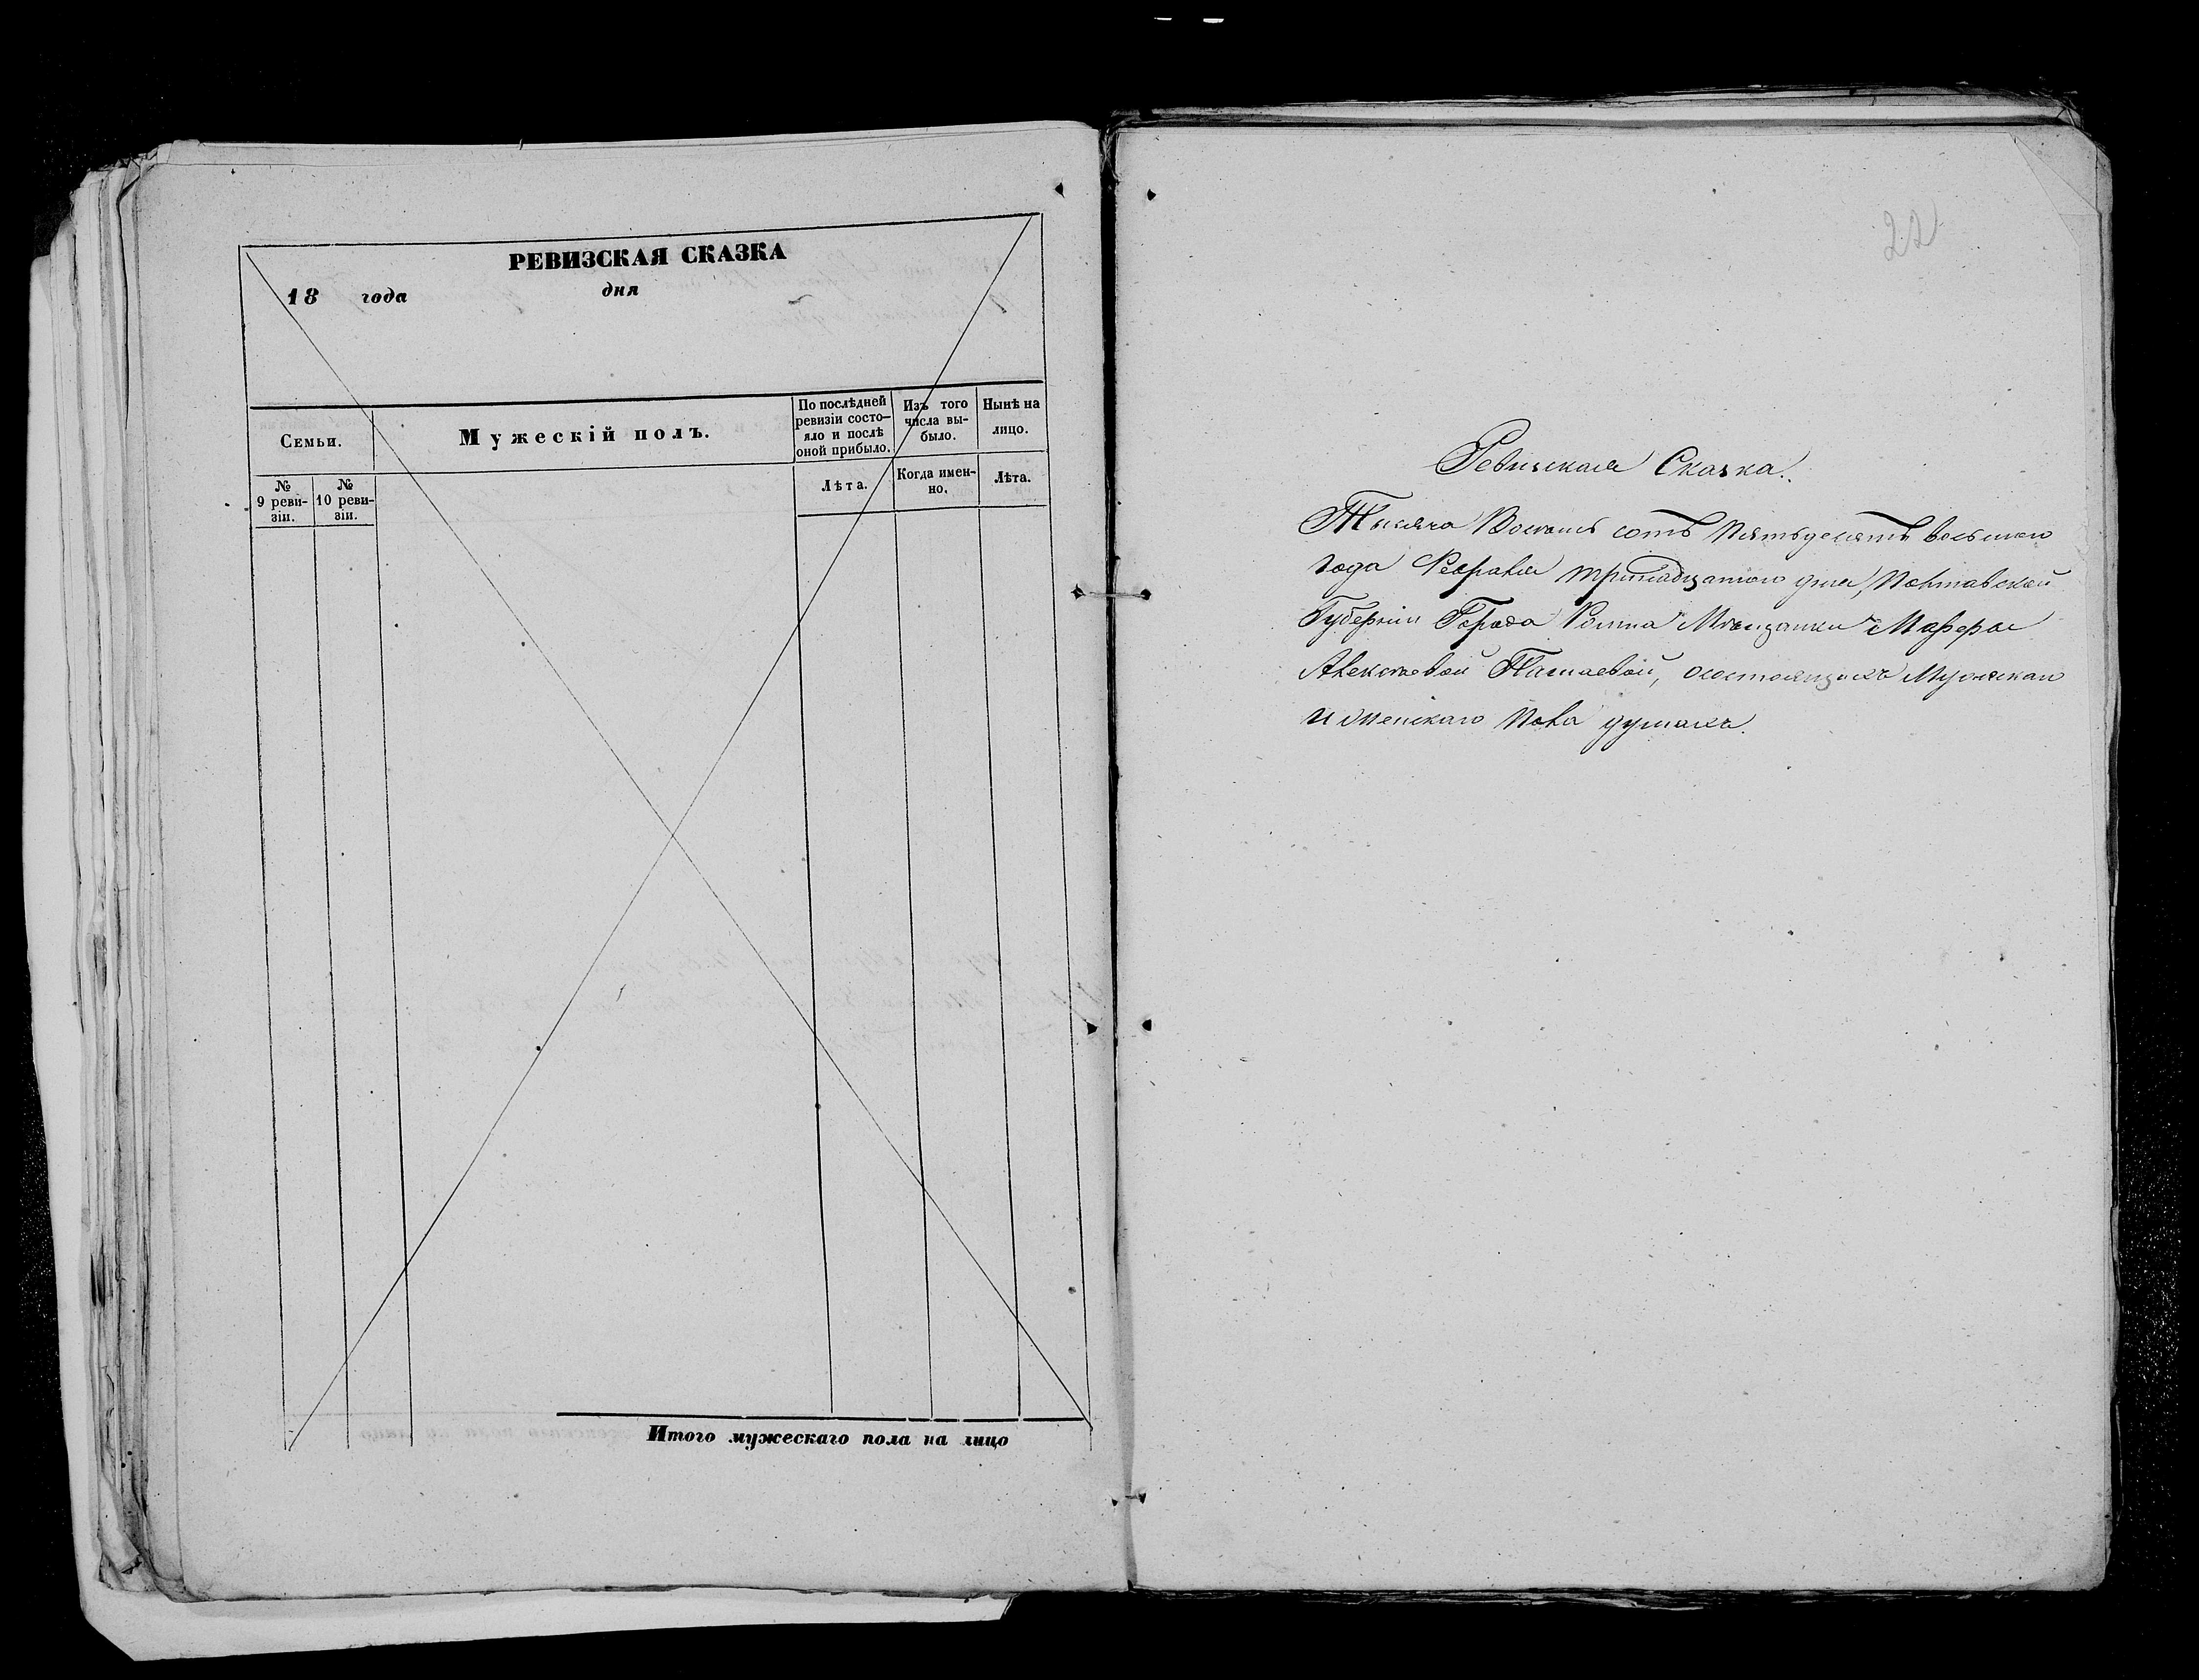 РЕВИЗСКАЯ СКАЗКА
18 года дня
Семьи.
Мужескій полъ.
По послѣдней
ревизіи состо-
яло и послѣ
оной прибыло.
Изъ того
числа вы-
было.
Нынѣ на
лицо.
№
9 реви-
зіи.
№
10 реви-
зіи.
Лѣта.
Когда имен-
но.
Лѣта.
Итого мужескаго пола на лицо
22
Ревизская Сказка.
Тысяча Восемь сотъ Пятьдесятъ восьмого
года Февраля тринадцатого дня, Полтавской
Губерніи Города Ромна Мѣщанки
Алексѣевой о состоящихъ Мужескаго
и Женскаго Пола душахъ.